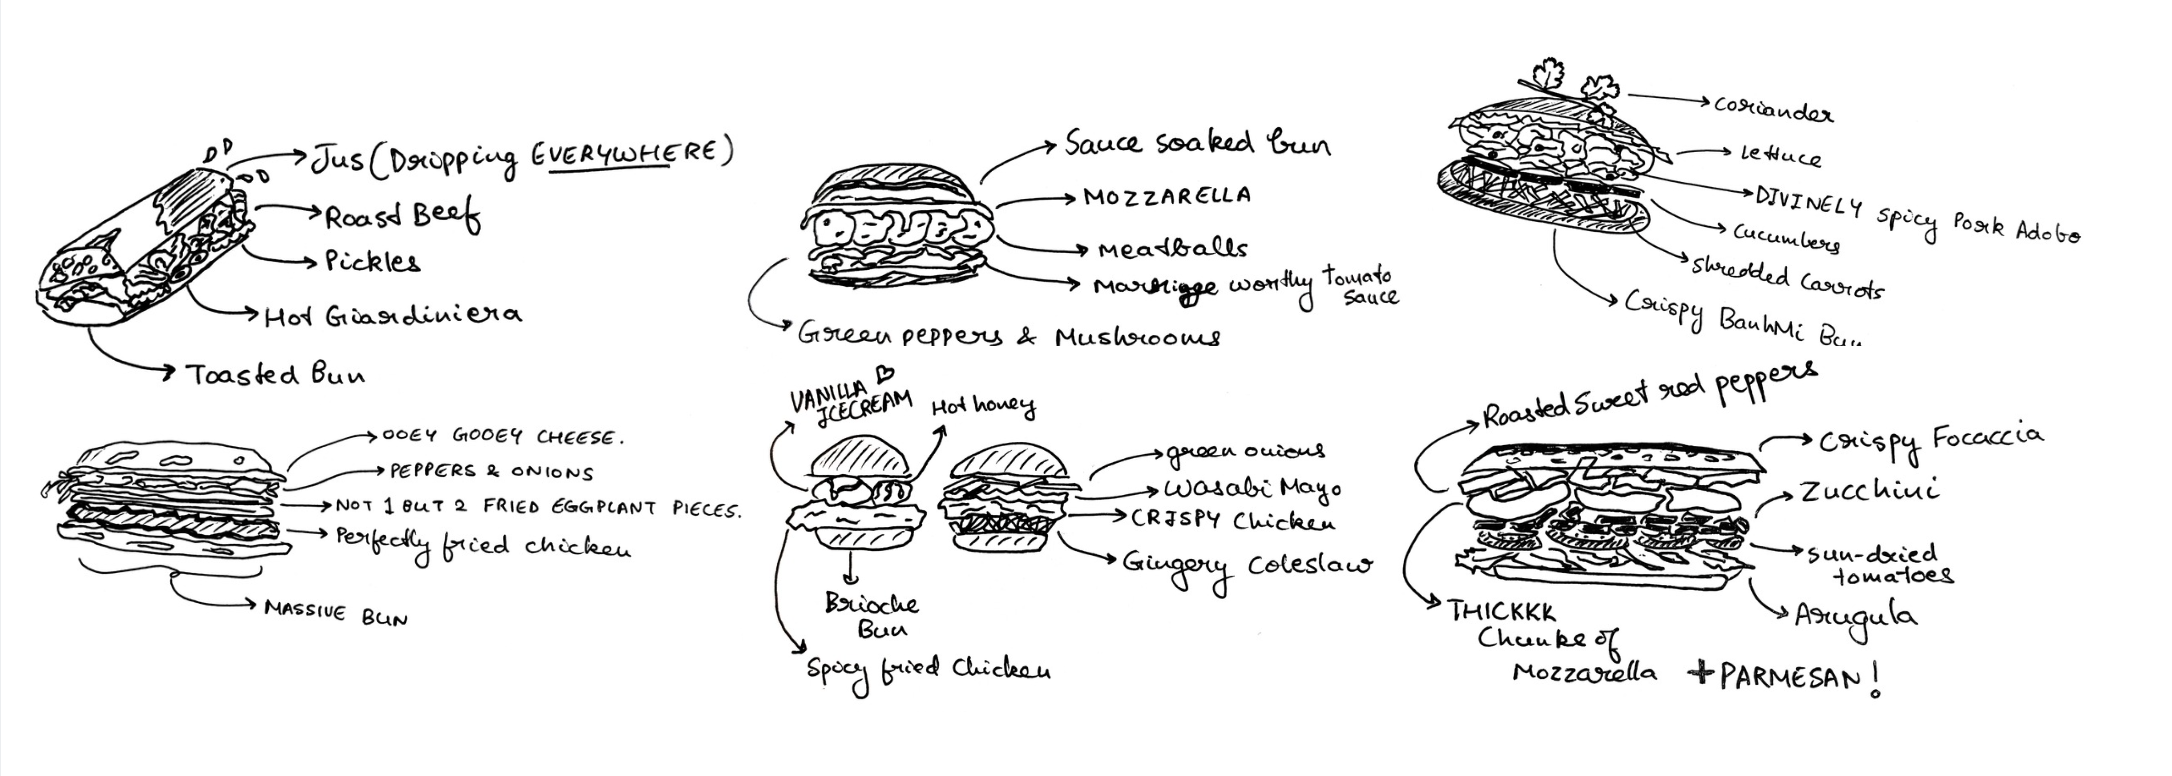 Jus (Dripping EVERYWHERE)
Roast Beef
Pickles
Hot Giardiniera
Toasted Bun
Sauce soaked bun
MOZZARELLA
Meatballs
Marriage worthy tomato
sauce
Green peppers & Mushrooms
coriander
lettuce
DIVINELY spicy Pork Adobo
cucumbers
shredded carrots
Crispy BanhMi Bun
OOEY GOOEY CHEESE.
PEPPERS & ONIONS
NOT 1 BUT 2 FRIED EGGPLANT PIECES.
Perfectly fried chicken
MASSIVE BUN
VANILLA
ICECREAM
Hot honey
Brioche
Bun
Spicy fried Chicken
green onions
Wasabi Mayo
CRISPY Chicken
Gingery Coleslaw
Roasted Sweet red peppers
Crispy Focaccia
Zucchini
sun-dried
tomatoes
Arugula
THICKKK
Chunks of
Mozzarella
+PARMESAN!